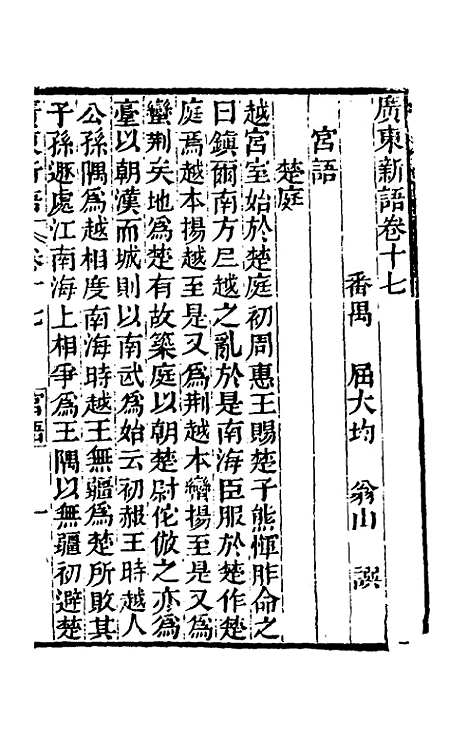 廣東新語卷十七
番禺 屈大均 翁山 譔
宮語
楚庭
越宮室始於楚庭初周惠王賜楚子熊惲胙命之
曰鎮爾南方尸越之亂於是南海臣服於楚作楚
庭焉越本揚越至是又爲荆越本蠻揚至是又爲
蠻荆矣地爲楚有故築庭以朝楚尉佗倣之亦爲
臺以朝漢而城則以南武爲始云初赧王時越人
公孫隅爲越相度南海時越王無疆爲楚所敗其
子孫遯處江南海上相爭爲王隅以無疆初避楚
廣東新語 卷十七 宮語 一